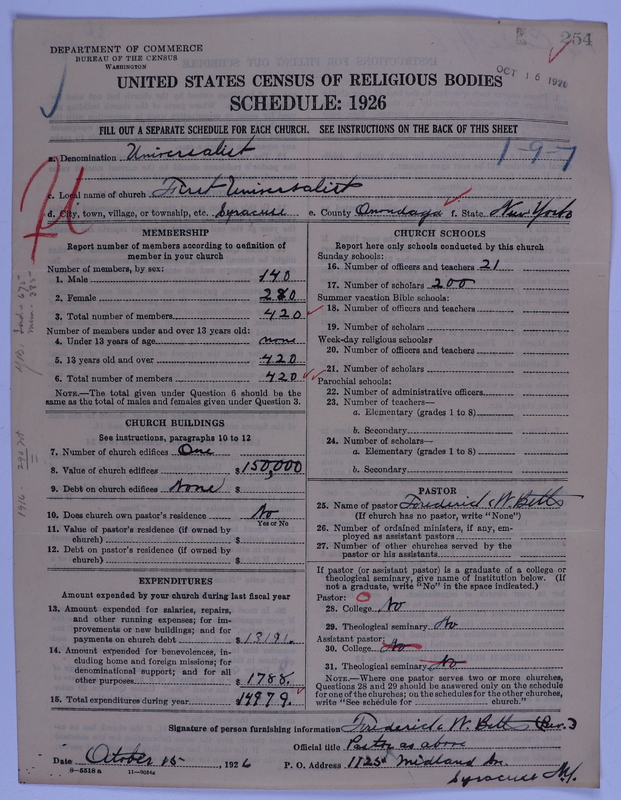 254
OCT 16 1926
DEPARTMENT OF COMMERCE
BUREAU OF THE CENSUS
WASHINGTON
UNITED STATES CENSUS OF RELIGIOUS BODIES
SCHEDULE: 1926
FILL OUT A SEPARATE SCHEDULE FOR EACH CHURCH. SEE INSTRUCTIONS ON THE BACK OF THIS SHEET
1-9-7
a. Denomination Universalist
c. Local name of church First Universalist
d. City, town, village, or township, etc. Syracuse e. County Onondaga f. State New York
MEMBERSHIP
Report number of members according to definition of
member in your church
Number of members, by sex:
1. Male 140
2. Female 280
3. Total number of members 420
Number of members under and over 13 years old:
4. Under 13 years of age none
5. 13 years old and over 420
6. Total number of members 420
NOTE.—The total given under Question 6 should be the
same as the total of males and females given under Question 3.
CHURCH BUILDINGS
See instructions, paragraphs 10 to 12
7. Number of church edifices One
8. Value of church edifices $150,000
9. Debt on church edifices None $
10. Does church own pastor's residence No
Yes or No
11. Value of pastor's residence (if owned by
church) $
12. Debt on pastor's residence (if owned by
church) $
EXPENDITURES
Amount expended by your church during last fiscal year
13. Amount expended for salaries, repairs,
and other running expenses; for im-
provements or new buildings; and for
payments on church debt $13191.
14. Amount expended for benevolences, in-
cluding home and foreign missions; for
denominational support; and for all
other purposes $1788.
15. Total expenditures during year $14979.
CHURCH SCHOOLS
Report here only schools conducted by this church
Sunday schools:
16. Number of officers and teachers 21
17. Number of scholars 200
Summer vacation Bible schools:
18. Number of officers and teachers
19. Number of scholars
Week-day religious schools:
20. Number of officers and teachers
21. Number of scholars
Parochial schools:
22. Number of administrative officers
23. Number of teachers—
a. Elementary (grades 1 to 8)
b. Secondary
24. Number of scholars—
a. Elementary (grades 1 to 8)
b. Secondary
PASTOR
25. Name of pastor Frederick W. Betts
(If church has no pastor, write "None")
26. Number of ordained ministers, if any, em-
ployed as assistant pastors
27. Number of other churches served by the
pastor or his assistants
If pastor (or assistant pastor) is a graduate of a college or
theological seminary, give name of institution below. (If
not a graduate, write "No" in the space indicated.)
Pastor: O
28. College No
29. Theological seminary No
Assistant pastor:
30. College No
31. Theological seminary No
NOTE.—Where one pastor serves two or more churches,
Questions 28 and 29 should be answered only on the schedule
for one of the churches; on the schedules for the other churches,
write "See schedule for church."
Signature of person furnishing information Frederick W. Betts (Rev.)
Official title Pastor as above
Date October 15, 1926 P. O. Address 1725 Midland Av.
Syracuse N.Y.
8-5518 a 11-9034a